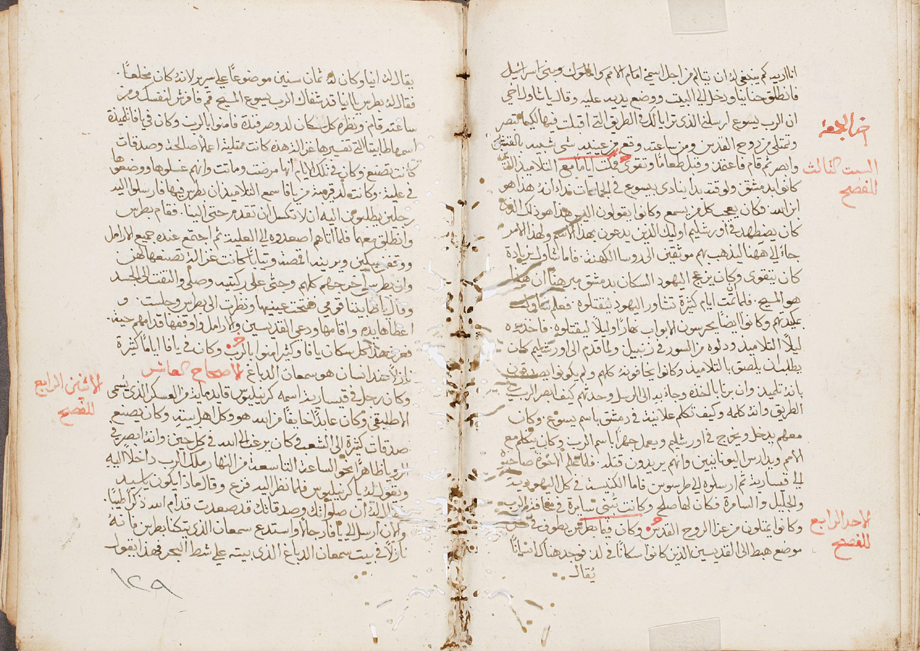 انا اريه كم ينبغي له ان يتالم من اجل اسمي امام الامم والملوك وبني اسرائيل
فانطلق حنانيا ودخل الى البيت ووضع يديه عليه وقال يا شاول اخي
ان الرب يسوع ارسلني الذي ترايا لك في الطريق التي اقبلت فيها لكيما تبصر
وتمتلي من روح القدس ومن ساعته وقع من عينيه شي شبيه بالقشر
وابصر ثم قام فاعتمد وقبل طعاما وتقوى فمكث اياما مع التلاميذ الذين
كانوا بدمشق ولوقته بدا ينادي بيسوع في الجماعات قايلا ان هذا هو
ابن الله وكان يعجب كل من يسمع وكانوا يقولون اليس هذا هو ذلك الذي
كان يضطهد في اورشليم اوليك الذين يدعون بهذا الاسم ولهذا الامر
جا الى ههنا ليذهب بهم موثقين الى روسا الكهنة فاما شاول بزيادة
كان يتقوى وكان يزعج اليهود السكان بدمشق يبرهن ان هذا
هو المسيح فلما تمت ايام كثيرة تشاور اليهود ليقتلوه فعلم شاول
بكيدهم وكانوا ايضا يحرسون الابواب نهارا وليلا ليقتلوه فاخذوه
ليلا التلاميذ ودلوه من السور في زنبيل ولما قدم الى اورشليم كان
يطلب ان يلصق بالتلاميذ وكانوا يخافونه كلهم ولم يكونوا يصدقون
بانه تلميذ وان برنابا اخذه وجا به الى الرسل وحدثهم كيف ابصر الرب
الطريق وانه كلمه وكيف تكلم علانية في دمشق باسم يسوع وكان
معهم يدخل ويخرج في اورشليم ويعمل جهرا باسم الرب وكان يتكلم مع
الامم ويدارس اليونانيين وانهم يريدون قتله فلما علم الاخوة صاحبوه
الى قيسارية ثم ارسلوه الى طرسوس فاما الكنيسة في كل اليهودية
والجليل والسامرة فكان لها صلح وكانت تبنى سايرة في مخافة الرب
وكانوا يمتلون من عزا الروح القدس وكان فيما بطرس يطوف في كل
موضع هبط الى القديسين الذين كانوا سكانا في لد فوجد هناك انسانا
يقال
السبت الثالث
للفصح
الاحد الرابع
للفصح
يقال له انيا وكان له ثمان سنين موضوعا على سرير لانه كان مخلعا
فقال له بطرس يا انيا قد شفاك الرب يسوع المسيح قم فافرش لنفسك ومن
ساعته قام ونظره كل سكان لد وصرفندة فامنوا بالرب وكان في يافا تلميذة
اسمها طابيثا التي تفسيرها غزالة هذه كانت ممتلية اعمالا صالحة وصدقات
كانت تصنع وكان في تلك الايام انها مرضت وماتت وانهم غسلوها ووضعوها
في علية وكانت لد قريبة من يافا سمع التلاميذ ان بطرس فيها فارسلوا اليه
رجلين يطلبون اليه ان لا تكسل ان تقدم حتى الينا فقام بطرس
وانطلق معهما فلما اتاهم اصعدوه الى العلية ثم اجتمع عنده جميع الارامل
ووقفن يبكين ويرينه اقمصة وثيابا كانت غزالة تصنعها لهن
وان بطرس اخرجهم كلهم وجثى على ركبتيه وصلى والتفت الى الجسد
وقال يا طابيثا قومي ففتحت عينيها ونظرت الى بطرس وجلست و
اعطاها يده واقامها ودعى القديسين والارامل واوقفها قدامهم حية
فعرف هذا كل سكان يافا وكثير امنوا بالرب وكان في يافا اياما كثيرة
نازلا عند انسان هو سمعان الدباغ الاصحاح العاشر
وكان رجل في قيسارية اسمه كرنيليوس قايد ماية من العسكر الذي يسمى
الايطليقي وكان عابدا خايفا من الله هو وكل اهل بيته وكان يصنع
صدقات كثيرة الى الشعب وكان يرغب الى الله في كل حين وانه ابصر في
الرويا ظاهرا نحو الساعة التاسعة من النهار ملاك الرب داخلا اليه
ويقول له يا كرنيليوس فلما نظر اليه فزع وقال ماذا يكون يا سيد
فقال له ان صلواتك وصدقاتك قد صعدت قدام الله ذكرا طيبا
والان ارسل الى يافا رجالا واستدع سمعان الذي يتكنا بطرس فانه
نازلا في بيت سمعان الدباغ الذي بيته على شط البحر فهذا يقول
الاثنين الرابع
للفصح
١٢٩